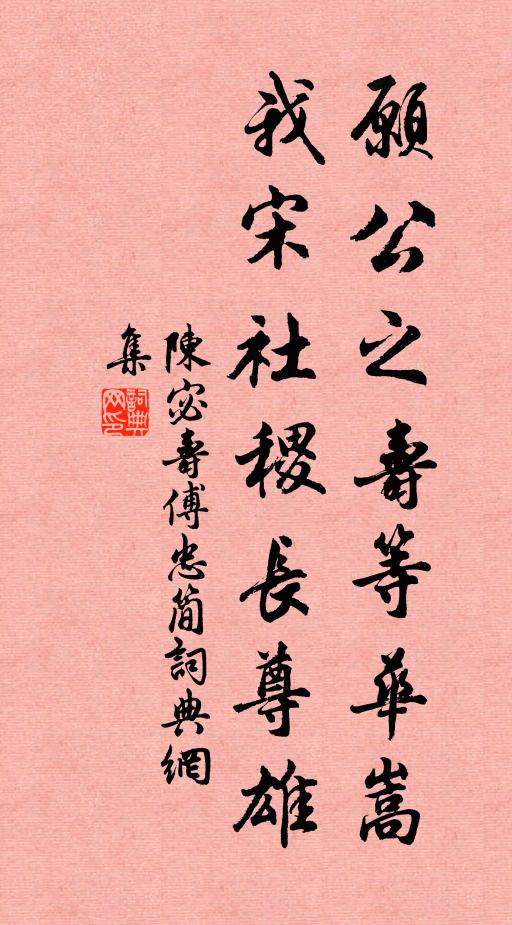 願公之壽等華嵩
我宋社稷長尊雄
陳宓壽傅忠簡詞典網
集
詞典網印